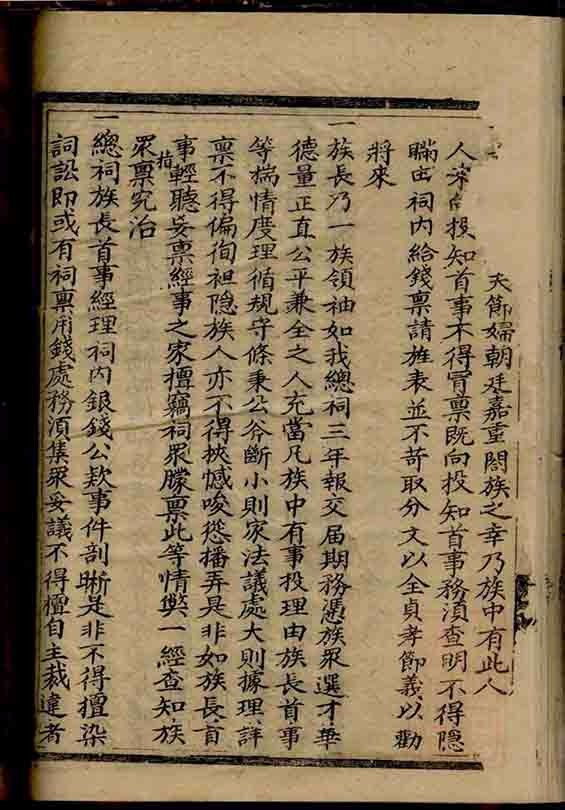 夫節婦朝廷嘉重閤族之幸乃族中有此人
人家向投知首事不得冐禀既向投知首事務湏查明不得隐
瞞由祠内給錢禀請旌表並不苛取分文以全貞孝節義以勸
將來
一族長乃一族領袖如我總祠三年報交届期務憑族衆選才華
德量正直公平兼全之人充當凡族中有事投理由族長首事
等揣情度理循規守條秉公斧斷小則家法議處大則據理詳
禀不得偏徇袒隐族人亦不得挾憾唆慫播弄是非如族長首
事輕聽妄禀經事之家擅竊祠衆朦禀此等情獘一經查知族
衆禀究治
一總祠族長首事經理祠内銀錢公欵事件剖晰是非不得擅染
詞訟即或有祠禀用錢處務湏集衆妥議不得擅自主裁違者